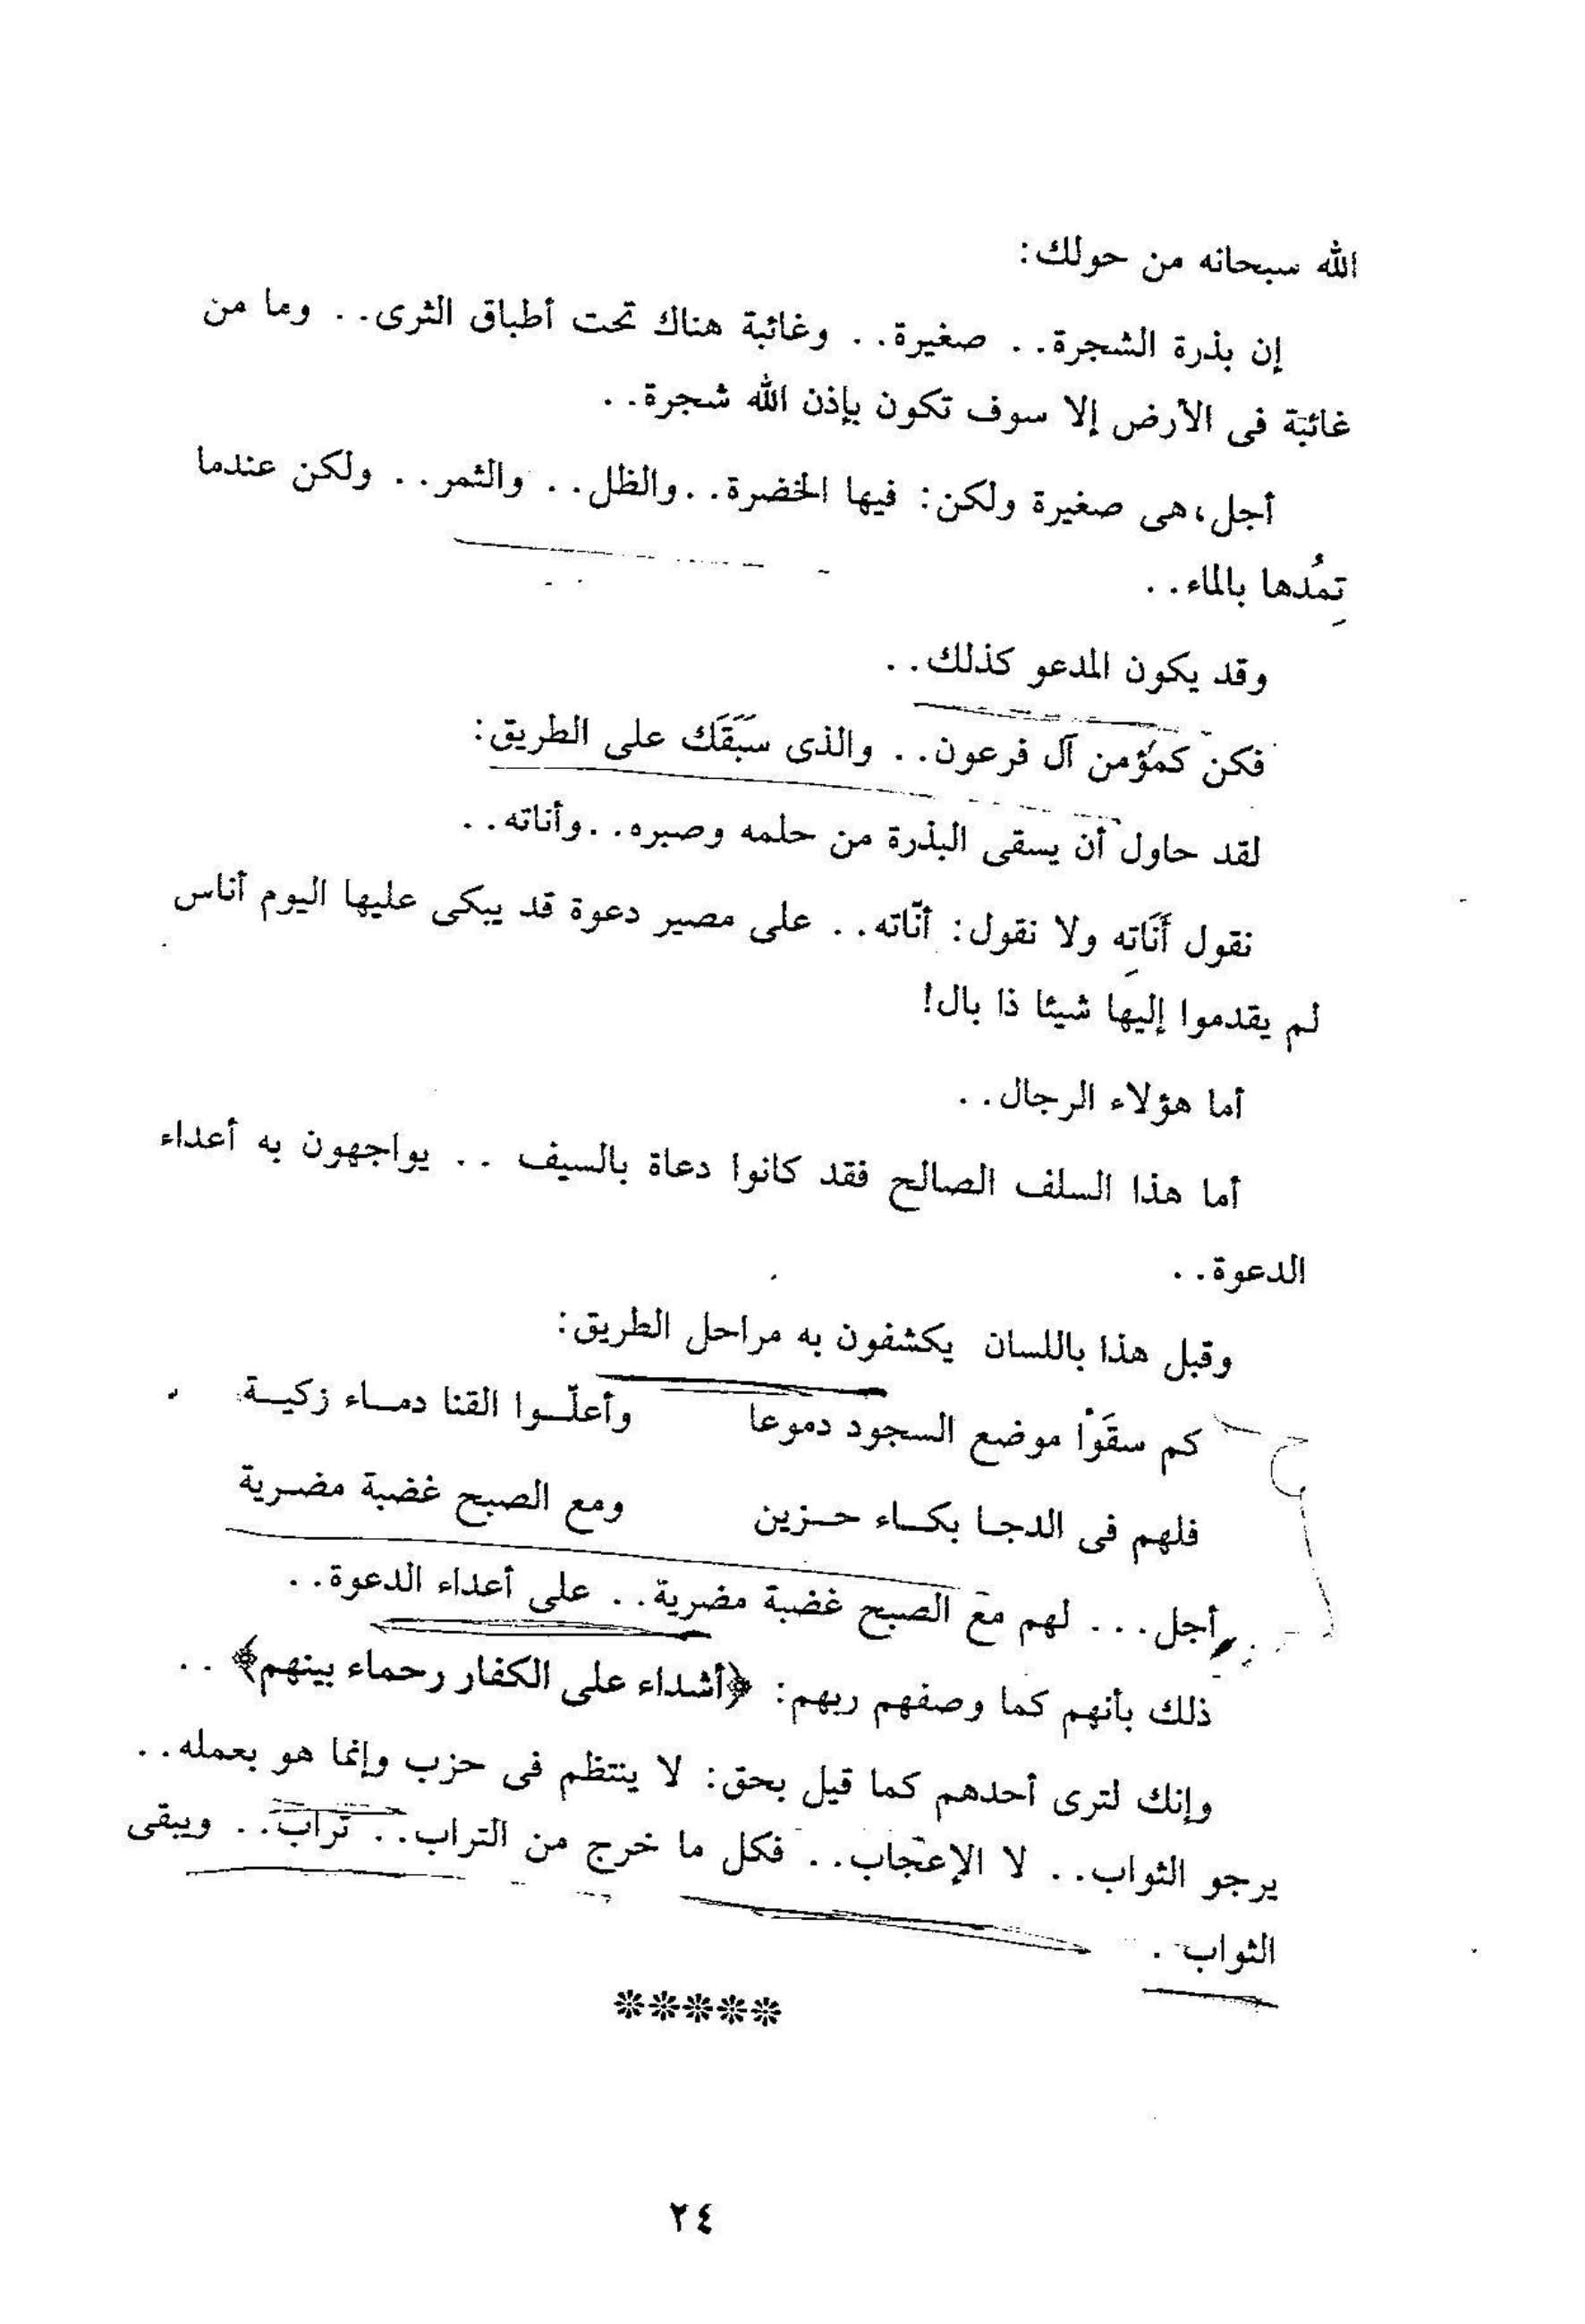 الله سبحانه من حولك:
إن بذرة الشجرة.. صغيرة.. وغائبة هناك تحت أطباق الثرى.. وما من
غائبة فى الأرض إلا سوف تكون بإذن الله شجرة..
أجل، هى صغيرة ولكن: فيها الخضرة.. والظل.. والثمر.. ولكن عندما
تمُدها بالماء..
وقد يكون المدعو كذلك..
فكن كمؤمن آل فرعون.. والذى سَبَقَك على الطريق:
لقد حاول أن يسقى البذرة من حلمه وصبره.. وأناته..
نقول أَنَاتِه ولا نقول: أنّاته.. على مصير دعوة قد يبكى عليها اليوم أناس
لم يقدموا إليها شيئا ذا بال!
أما هؤلاء الرجال..
أما هذا السلف الصالح فقد كانوا دعاة بالسيف .. يواجهون به أعداء
الدعوة..
وقبل هذا باللسان يكشفون به مراحل الطريق:
كم سقَوْا موضع السجود دموعا وأعلّـوا القنا دمـاء زكيـة
فلهم فى الدجـا بكـاء حـزين ومع الصبح غضبة مضـرية
أجل... لهم مع الصبح غضبة مضرية.. على أعداء الدعوة..
ذلك بأنهم كما وصفهم ربهم: ﴿أشداء على الكفار رحماء بينهم﴾ ..
وإنك لترى أحدهم كما قيل بحق: لا ينتظم فى حزب وإنما هو بعمله..
يرجو الثواب.. لا الإعجاب.. فكل ما خرج من التراب.. تراب.. ويبقى
الثواب .
*****
٢٤